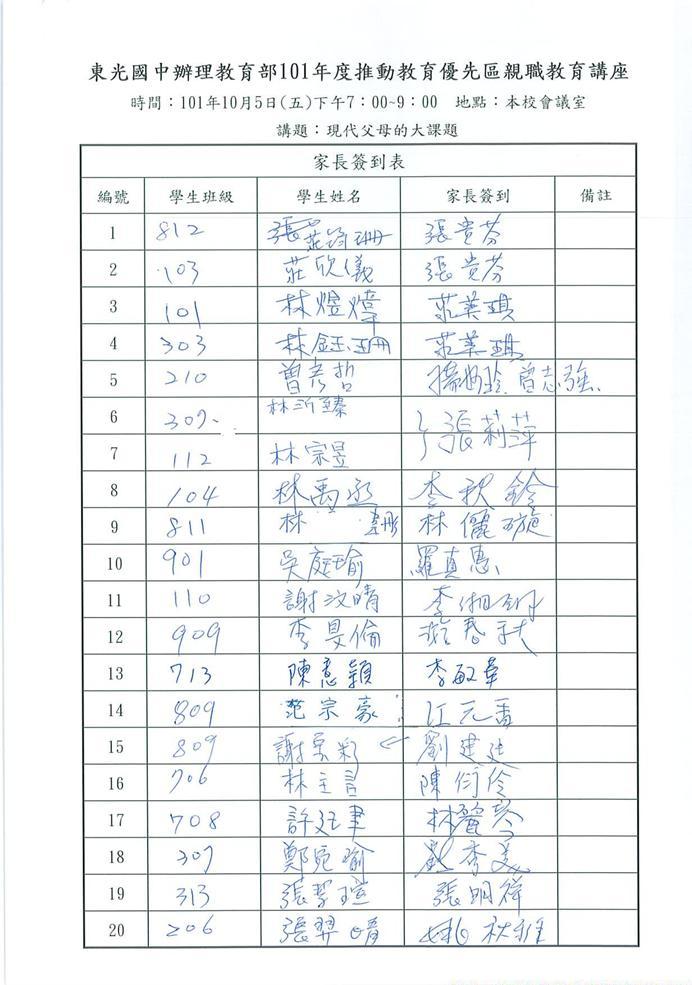 東光國中辦理教育部101年度推動教育優先區親職教育講座
時間：101年10月5日(五)下午7：00~9：00 地點：本校會議室
講題：現代父母的大課題
家長簽到表
編號 學生班級 學生姓名 家長簽到 備註
1 812 張貴芬
2 103 莊欣儀 張貴芬
3 101 林煜 美琪
4 303 林鈺珊 美琪
5 210 曾彥哲 曾志強
6 307 林沂臻 張莉萍
7 112 林宗昱
8 104 林禹丞 李秋鈴
9 811 林 林儷璇
10 901 吳庭瑜 羅真惠
11 110 謝汶晴 李
12 909 李旻倫 春秋
13 713 陳意穎 李敏華
14 809 范宗豪 江元香
15 809 謝 劉建廷
16 706 林主言 陳衍伶
17 708 許廷聿 林麗琴
18 307 鄭宛瑜 秀美
19 313 張 瑄 張明祥
20 206 張羿晴 姚秋雅